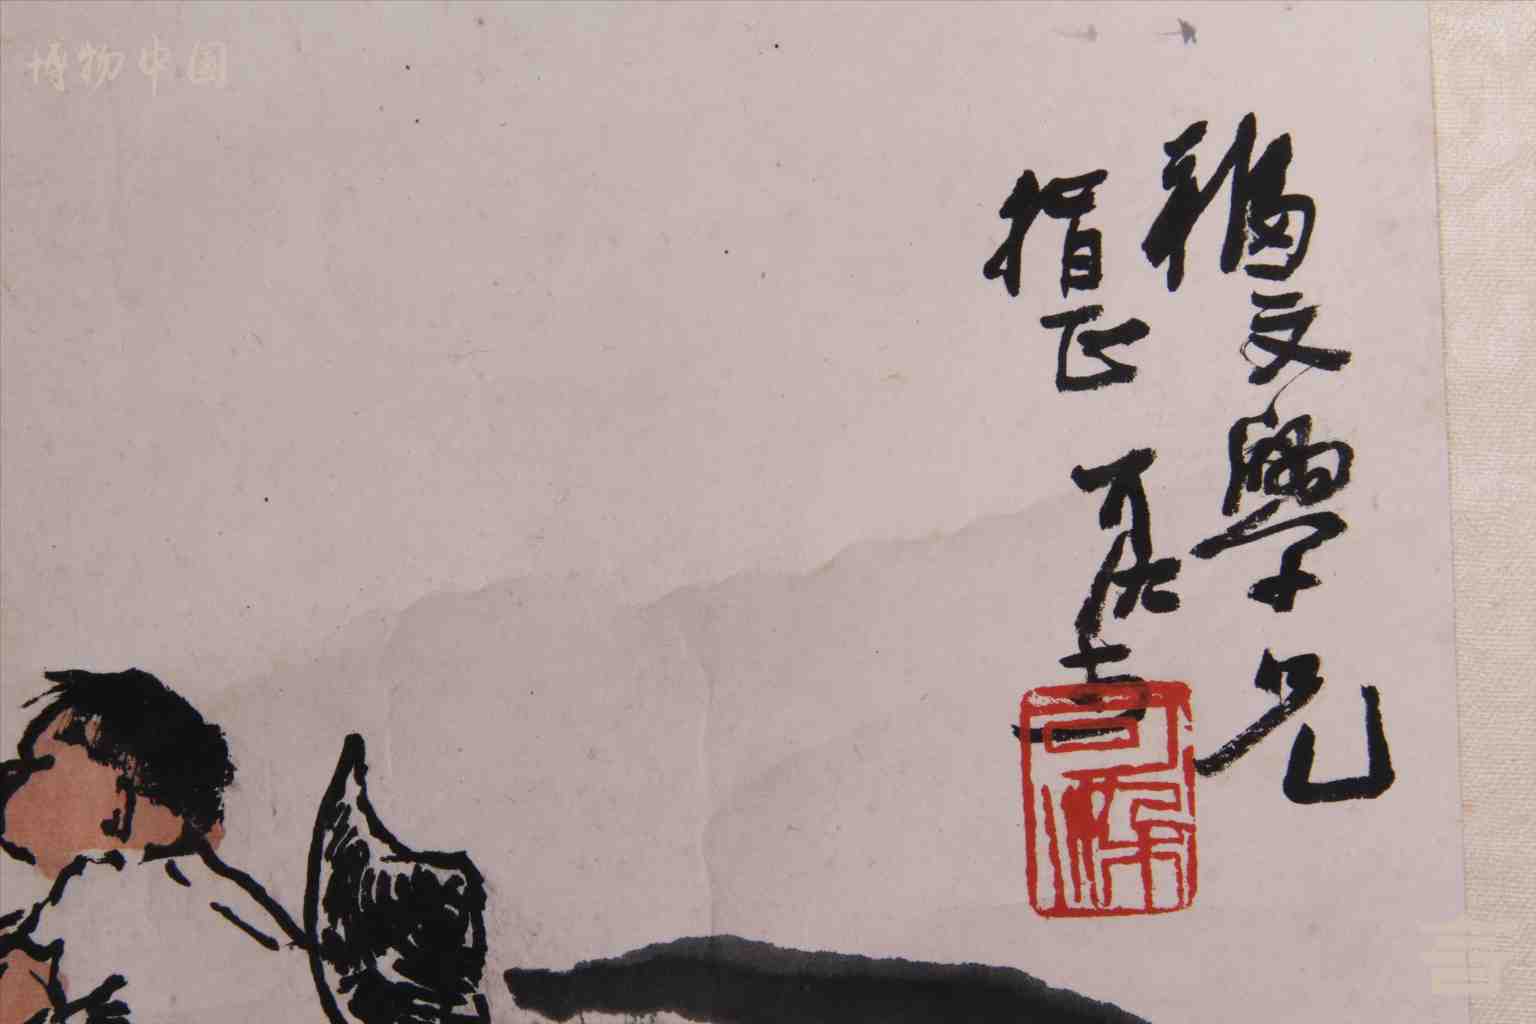 博物中国
文學兄
指正
可染
可染